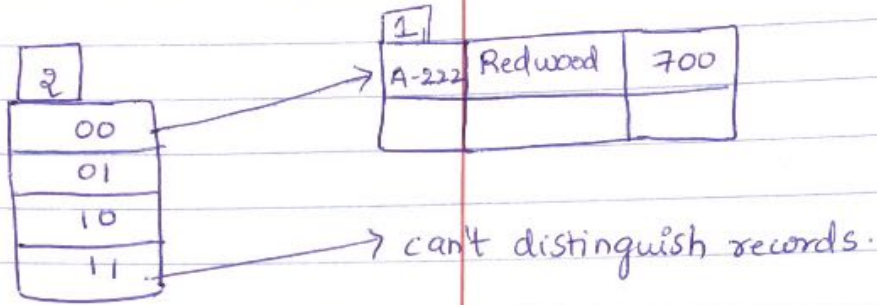 1
2
A-222 Redwood 700
00
01
10
11
can't distinguish records.